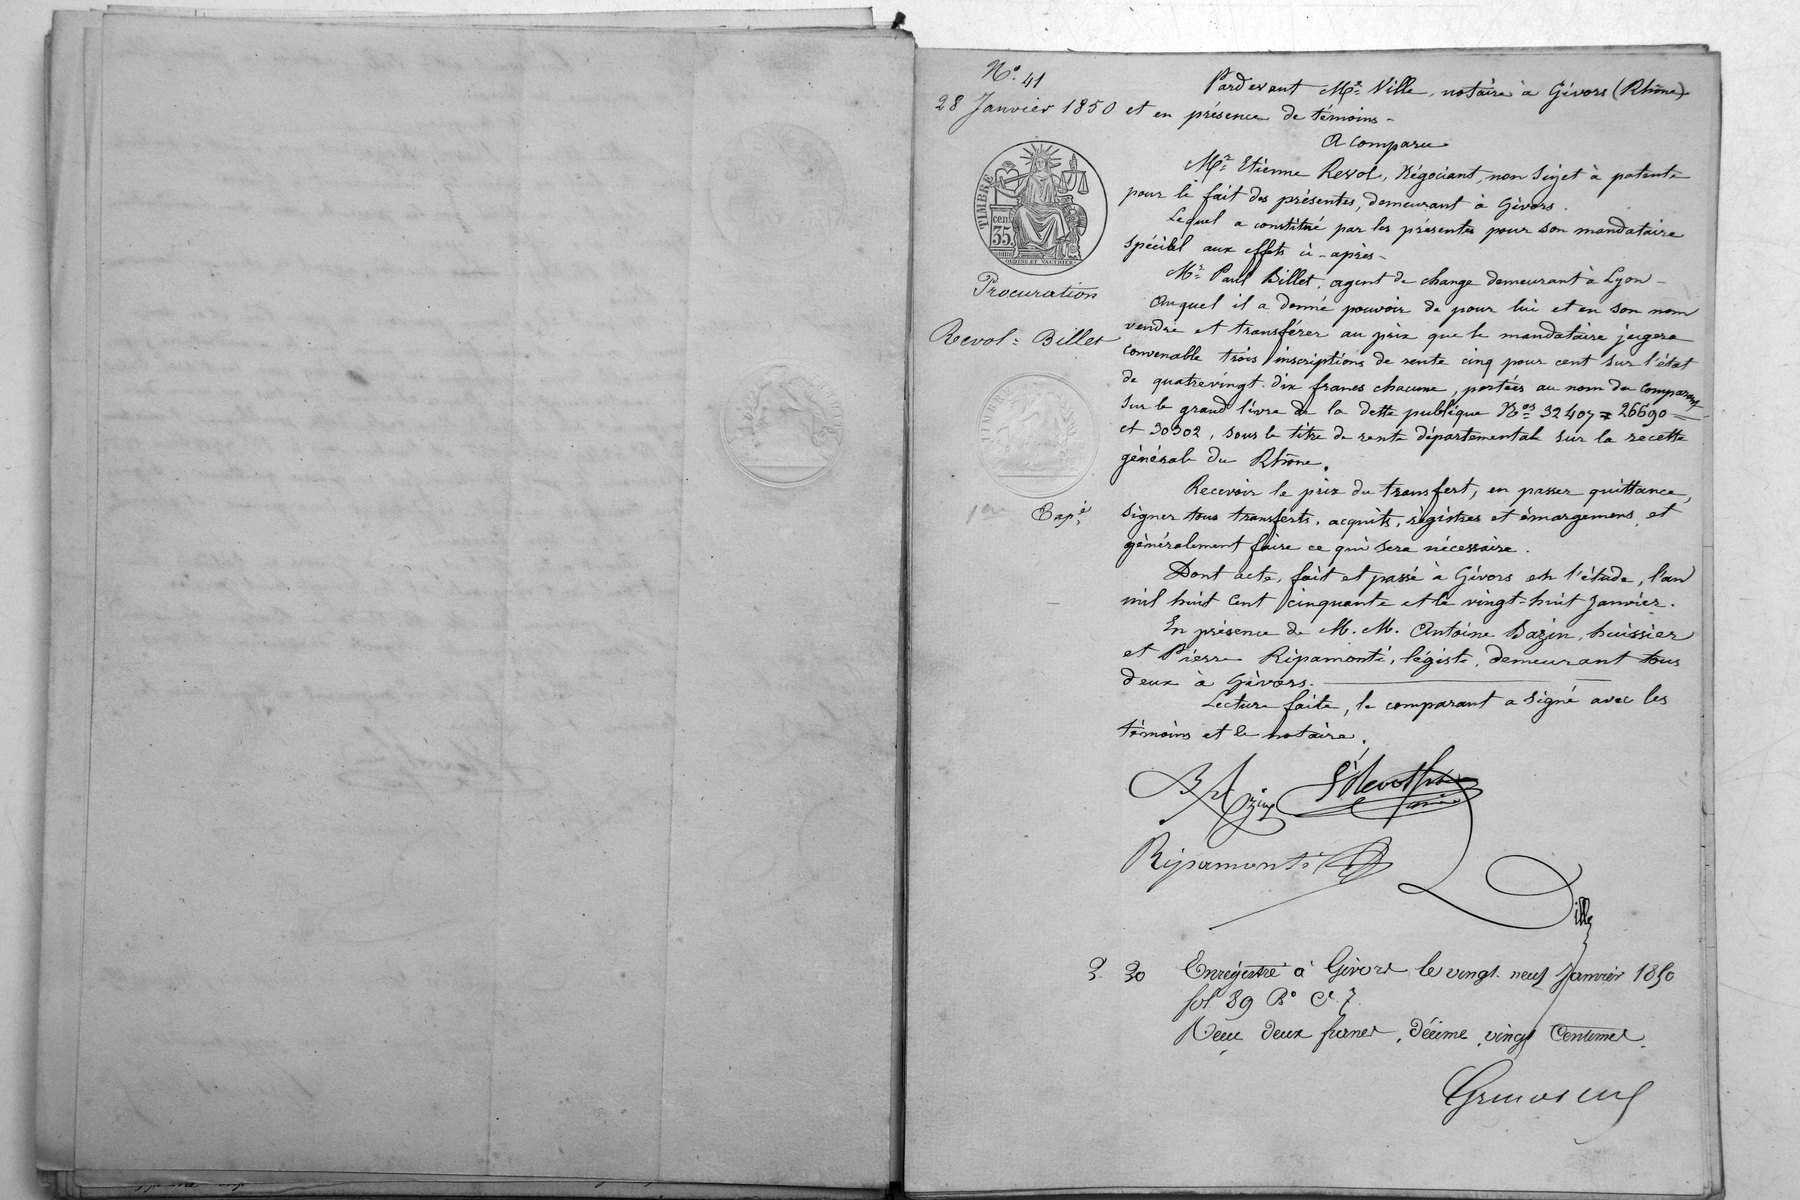 N° 41
28 Janvier 1850
TIMBRE
cen.
35
Procuration
Revol = Billet
Exp.é
Pardevant Mtre Ville, notaire à Givors (Rhône)
et en présence de témoins -
A comparu
Mr Etienne Revol, Négociant, non sujet à patente
pour le fait des présentes, demeurant à Givors.
Lequel a constitué par les présentes pour son mandataire
spécial aux effets ci-après -
Mr Paul Billet, agent de change demeurant à Lyon -
Auquel il a donné pouvoir de pour lui et en son nom
vendre et transférer au prix que le mandataire jugera
convenable trois inscriptions de rente cinq pour cent sur l'état
de quatrevingt-dix francs chacune, portées au nom du comparant
sur le grand livre de la dette publique Nos 32407 = 26690 =
et 30302, sous le titre de rente départementale sur la recette
générale du Rhône.
Recevoir le prix du transfert, en passer quittance,
signer tous transferts, acquits, régistres et émargemens, et
généralement faire ce qui sera nécessaire.
Dont acte, fait et passé à Givors en l'étude, l'an
mil huit cent cinquante et le vingt-huit Janvier.
En présence de M. M. Antoine Bazin, huissier
et Pierre Ripamonti, légiste, demeurant tous
deux à Givors.
Lecture faite, le comparant a signé avec les
témoins et le notaire.
Bazin E Revol
Ripamonti
Ville
2. 20 Enregistré à Givors le vingt neuf Janvier 1850
fol 89 R° Ce 7.
Reçu deux francs, décime vingt Centimes.